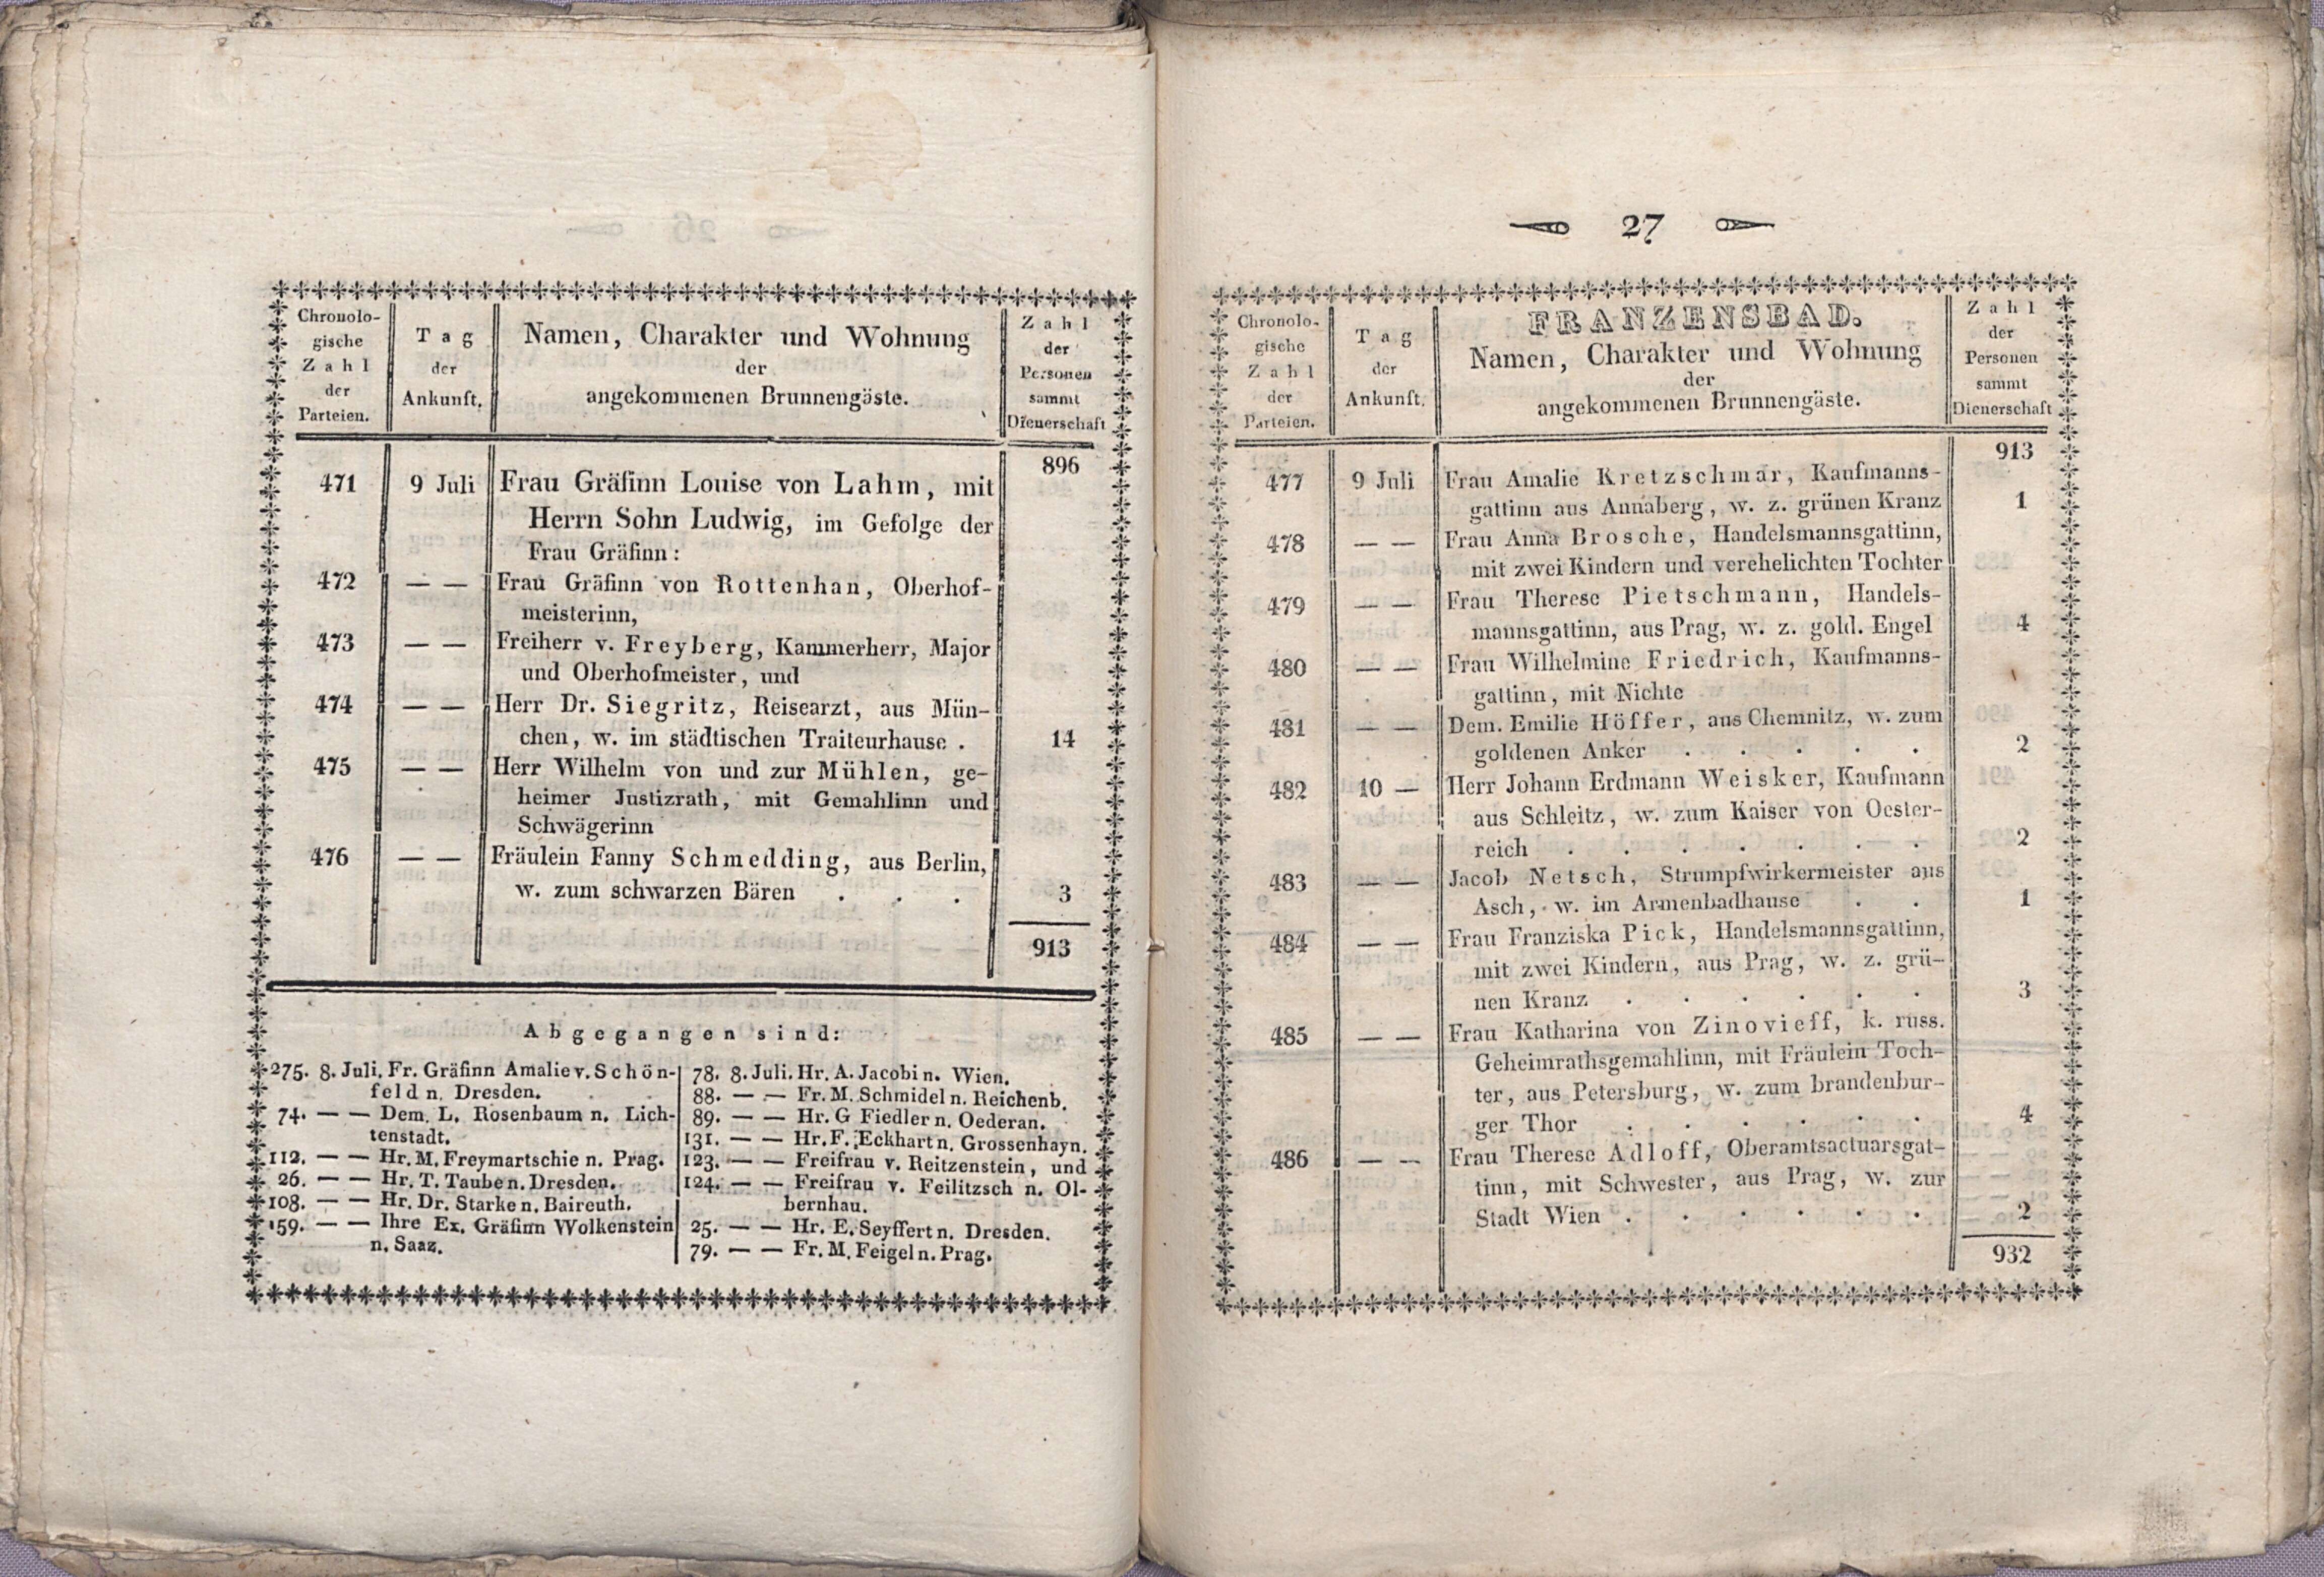 Chronolo-
gische
Zahl
der
Parteien.
Tag
der
Ankunft.
Namen, Charakter und Wohnung
der
angekommenen Brunnengäste.
Zahl
der
Personen
sammt
Dienerschaft
896
471 9 Juli Frau Gräfinn Louise von Lahm, mit
Herrn Sohn Ludwig, im Gefolge der
Frau Gräfinn:
472 — — Frau Gräfinn von Rottenhan, Oberhof-
meisterinn,
473 — — Freiherr v. Freyberg, Kammerherr, Major
und Oberhofmeister, und
474 — — Herr Dr. Siegritz, Reisearzt, aus Mün-
chen, w. im städtischen Traiteurhause . 14
475 — — Herr Wilhelm von und zur Mühlen, ge-
heimer Justizrath, mit Gemahlinn und
Schwägerinn
476 — — Fräulein Fanny Schmedding, aus Berlin,
w. zum schwarzen Bären . . . 3
913
Abgegangen sind:
275. 8. Juli. Fr. Gräfinn Amalie v. Schön-
feld n. Dresden.
74. — — Dem. L. Rosenbaum n. Lich-
tenstadt.
112. — — Hr. M. Freymartschie n. Prag.
26. — — Hr. T. Taube n. Dresden.
108. — — Hr. Dr. Starke n. Baireuth.
159. — — Ihre Ex. Gräfinn Wolkenstein
n. Saaz.
78. 8. Juli. Hr. A. Jacobi n. Wien.
88. — — Fr. M. Schmidel n. Reichenb.
89. — — Hr. G Fiedler n. Oederan.
131. — — Hr. F. Eckhart n. Grossenhayn.
123. — — Freifrau v. Reitzenstein, und
124. — — Freifrau v. Feilitzsch n. Ol-
bernhau.
25. — — Hr. E. Seyffert n. Dresden.
79. — — Fr. M. Feigel n. Prag.
27
Chronolo-
gische
Zahl
der
Parteien.
Tag
der
Ankunft.
FRANZENSBAD.
Namen, Charakter und Wohnung
der
angekommenen Brunnengäste.
Zahl
der
Personen
sammt
Dienerschaft
913
477 9 Juli Frau Amalie Kretzschmar, Kaufmanns-
gattinn aus Annaberg, w. z. grünen Kranz 1
478 — — Frau Anna Brosche, Handelsmannsgattinn,
mit zwei Kindern und verehelichten Tochter
479 — — Frau Therese Pietschmann, Handels-
mannsgattinn, aus Prag, w. z. gold. Engel 4
480 — — Frau Wilhelmine Friedrich, Kaufmanns-
gattinn, mit Nichte
481 — — Dem. Emilie Höffer, aus Chemnitz, w. zum
goldenen Anker . . . . . 2
482 10 — Herr Johann Erdmann Weisker, Kaufmann
aus Schleitz, w. zum Kaiser von Oester-
reich . . . . . . . 2
483 — — Jacob Netsch, Strumpfwirkermeister aus
Asch, w. im Armenbadhause . . 1
484 — — Frau Franziska Pick, Handelsmannsgattinn,
mit zwei Kindern, aus Prag, w. z. grü-
nen Kranz . . . . . . 3
485 — — Frau Katharina von Zinovieff, k. russ.
Geheimrathsgemahlinn, mit Fräulein Toch-
ter, aus Petersburg, w. zum brandenbur-
ger Thor . . . . . . 4
486 — — Frau Therese Adloff, Oberamtsactuarsgat-
tinn, mit Schwester, aus Prag, w. zur
Stadt Wien . . . . . . 2
932